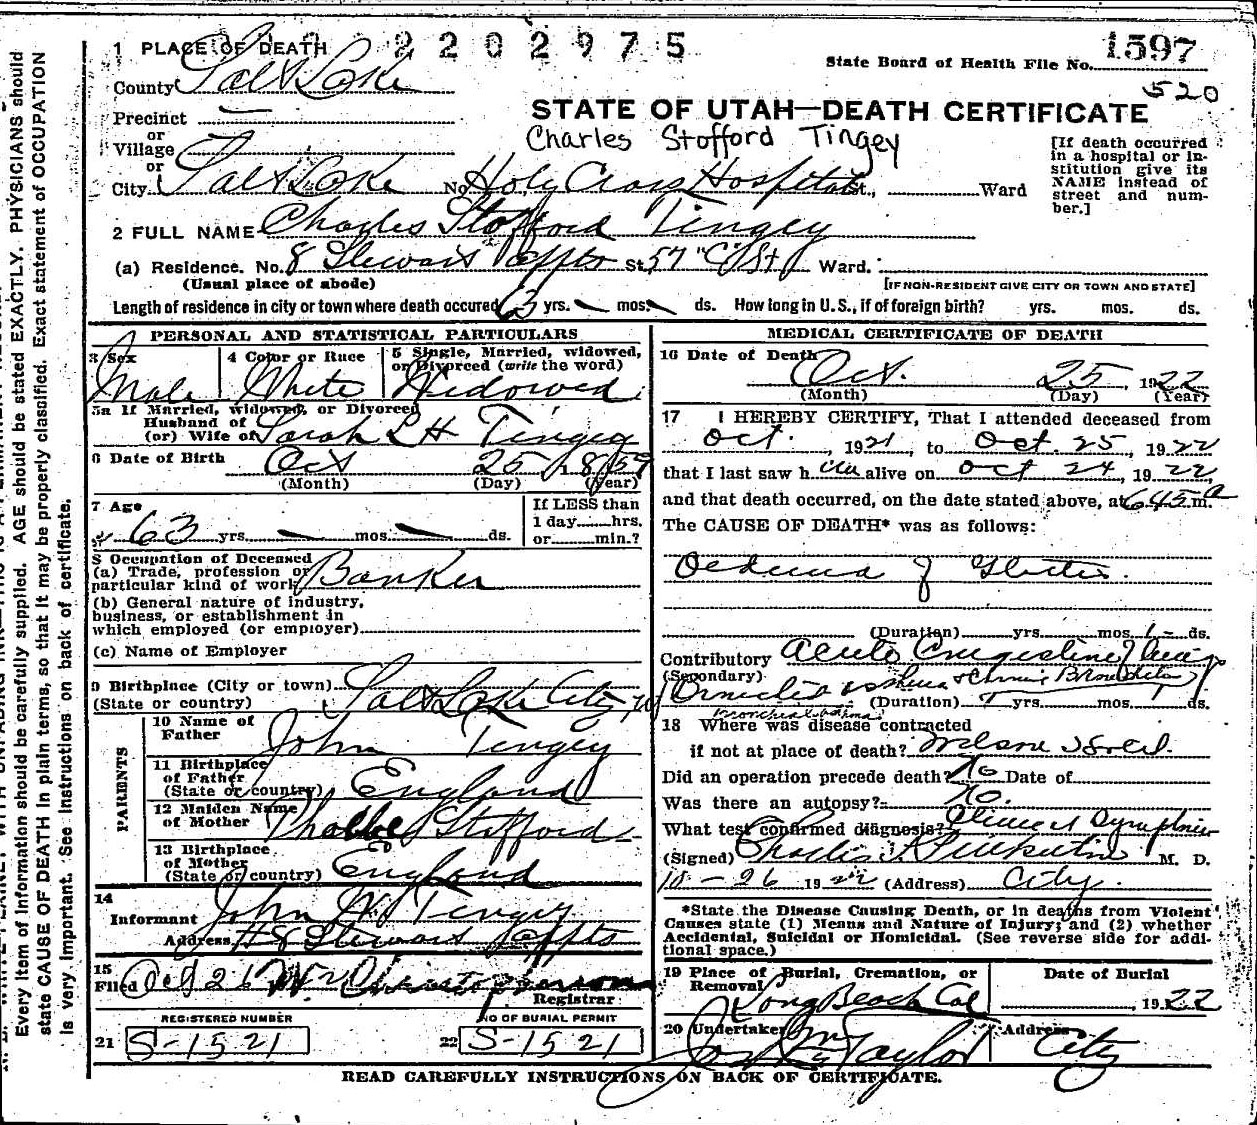 2202975
1 PLACE OF DEATH
State Board of Health File No. 1597
County Salt Lake
520
STATE OF UTAH—DEATH CERTIFICATE
Precinct —
Charles Stofford Tingey
or
Village
or
City Salt Lake No. Holy Cross Hospital St., Ward
[If death occurred
in a hospital or in-
stitution give its
NAME instead of
street and num-
ber.]
2 FULL NAME Charles Stofford Tingey
(a) Residence. No. 8 Stewart Appts St. 57 "C" St Ward.
(Usual place of abode)
[IF NON-RESIDENT GIVE CITY OR TOWN AND STATE]
Length of residence in city or town where death occured 63 yrs. — mos. — ds. How long in U.S., if of foreign birth? yrs. mos. ds.
PERSONAL AND STATISTICAL PARTICULARS
3 Sex
Male
4 Color or Race
White
5 Single, Married, widowed,
or Divorced (write the word)
Widowed
5a If Married, widowed, or Divorced
Husband of
(or) Wife of Sarah L H Tingey
6 Date of Birth Oct 25 1859
(Month) (Day) (Year)
7 Age
63 yrs. — mos. — ds.
If LESS than
1 day hrs.
or min.?
8 Occupation of Deceased
(a) Trade, profession or
particular kind of work Banker
(b) General nature of industry,
business, or establishment in
which employed (or employer)
(c) Name of Employer
9 Birthplace (City or town) Salt Lake City
(State or country)
PARENTS
10 Name of
Father John Tingey
11 Birthplace
of Father
(State or country) England
12 Maiden Name
of Mother Phoebe Stofford
13 Birthplace
of Mother
(State or country) England
14
Informant John W. Tingey
Address #8 Stewart Appts
15
Filed Oct 26
Registrar
REGISTERED NUMBER
21 S-1521
NO OF BURIAL PERMIT
22 S-1521
MEDICAL CERTIFICATE OF DEATH
16 Date of Death
Oct. 25, 1922
(Month) (Day) (Year)
17 I HEREBY CERTIFY, That I attended deceased from
Oct., 1921, to Oct. 25, 1922
that I last saw him alive on Oct 24, 1922,
and that death occurred, on the date stated above, at 645 a m.
The CAUSE OF DEATH* was as follows:
Oedema of Glottis.
(Duration) yrs. mos. 1 ds.
Contributory Acute
(Secondary)
Bronchitis
(Duration) yrs. mos. ds.
18 Where was disease contracted
if not at place of death?
Did an operation precede death? No Date of
Was there an autopsy? No.
What test confirmed diagnosis?
(Signed) Charles M. D.
10-26 1922 (Address) City.
*State the Disease Causing Death, or in deaths from Violent
Causes state (1) Means and Nature of Injury; and (2) whether
Accidental, Suicidal or Homicidal. (See reverse side for addi-
tional space.)
19 Place of Burial, Cremation, or
Removal Long Beach Cal
Date of Burial
, 1922
20 Undertaker Jos Wm Taylor
Address
City
READ CAREFULLY INSTRUCTIONS ON BACK OF CERTIFICATE.
Every item of information should be carefully supplied. AGE should be stated EXACTLY. PHYSICIANS should
state CAUSE OF DEATH in plain terms, so that it may be properly classified. Exact statement of OCCUPATION
is very important. See instructions on back of certificate.